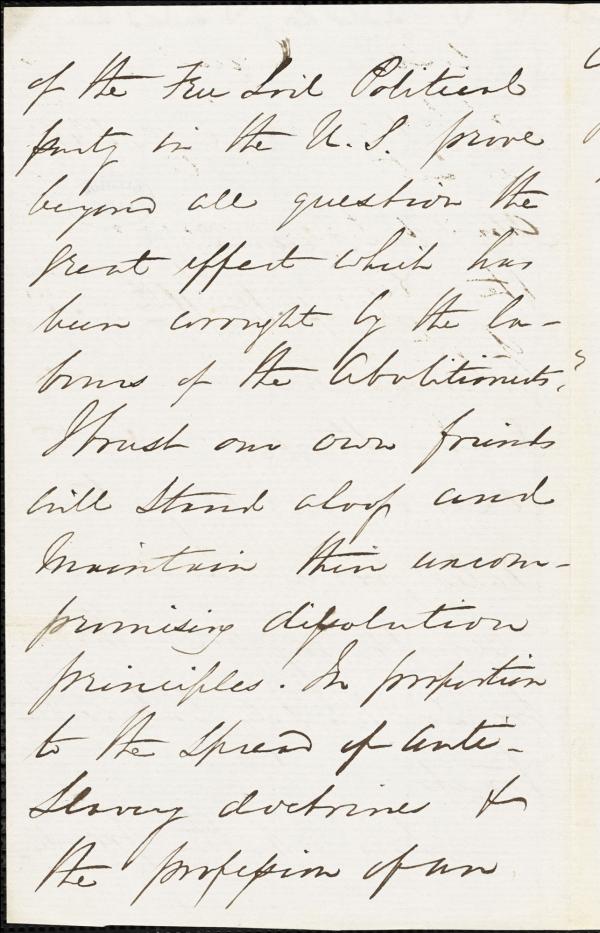 of the Free Soil Political
party in the U. S. prove
beyond all question the
great effect which has
been wrought by the la-
bours of the Abolitionists?
I trust our own friends
will stand aloof and
maintain their uncom-
promising dissolution
principles. In proportion
to the spread of Anti-
Slavery doctrines &
the profession of an